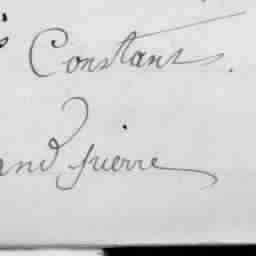 Constant.
and pierre